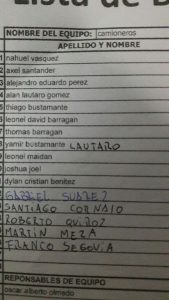 Lista de B
NOMBRE DEL EQUIPO: camioneros
APELLIDO Y NOMBRE
1 nahuel vasquez
2 axel santander
3 alejandro eduardo perez
4 alan lautaro gomez
5 thiago bustamante
6 leonel david barragan
7 thomas barragan
8 yamir bustamante LAUTARO
9 leonel maidan
joshua joel
dylan cristian benitez
GABRIEL SUAREZ
SANTIAGO CORNAJO
ROBERTO QUIROZ
MARTIN MEZA
FRANCO SEGOVIA
REPONSABLES DE EQUIPO
oscar alberto olmedo